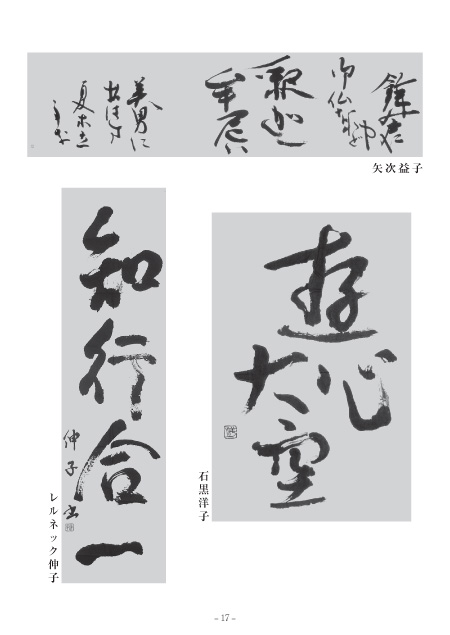 鎌倉や
御仏なれど
釈迦
牟尼は
美男に
おはす
夏木立
かな
矢次益子
遊心
大空
石黒洋子
知行合一
伸子書
レルネック伸子
– 17 –